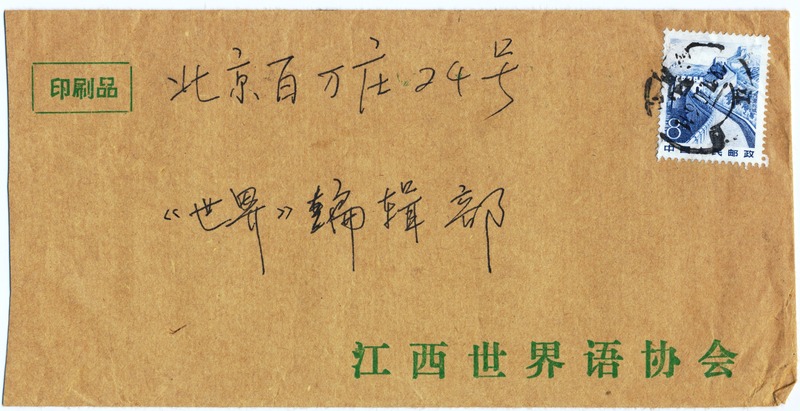 印刷品
北京百万庄24号
《世界》编辑部
8
中国人民邮政
江西世界语协会